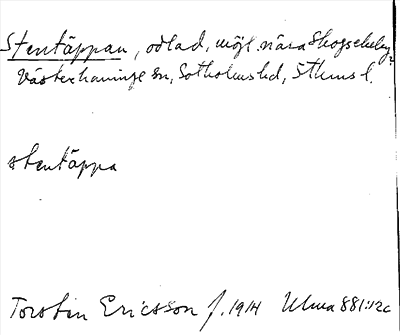 Stentäppan, odlad, möjl. nära Skogsekeby,
Västerhaninge sn, Sotholms hd, Sthms l.
stentäppa
Torsten Ericsson f. 1914 Ulma 881:12c